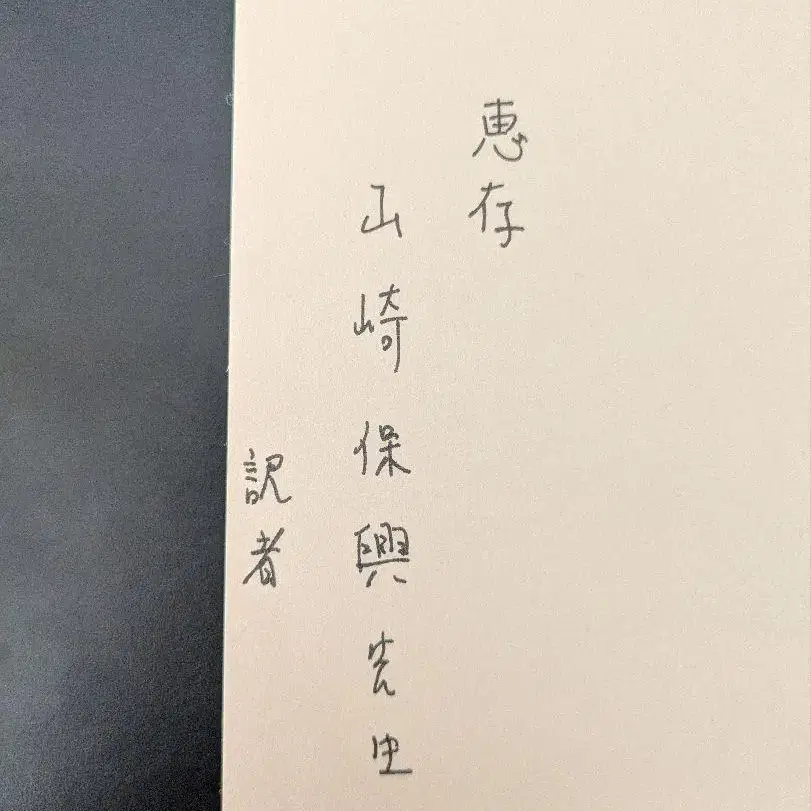 恵存
山崎保興先生
訳者